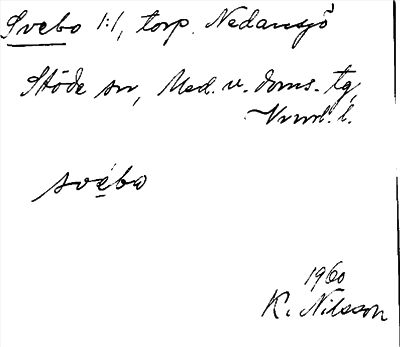 Svebo 1:1, torp. Nedansjö
Stöde sn, Med. v. doms. tg,
Vrnrl. l.
svebo
1960
K. Nilsson